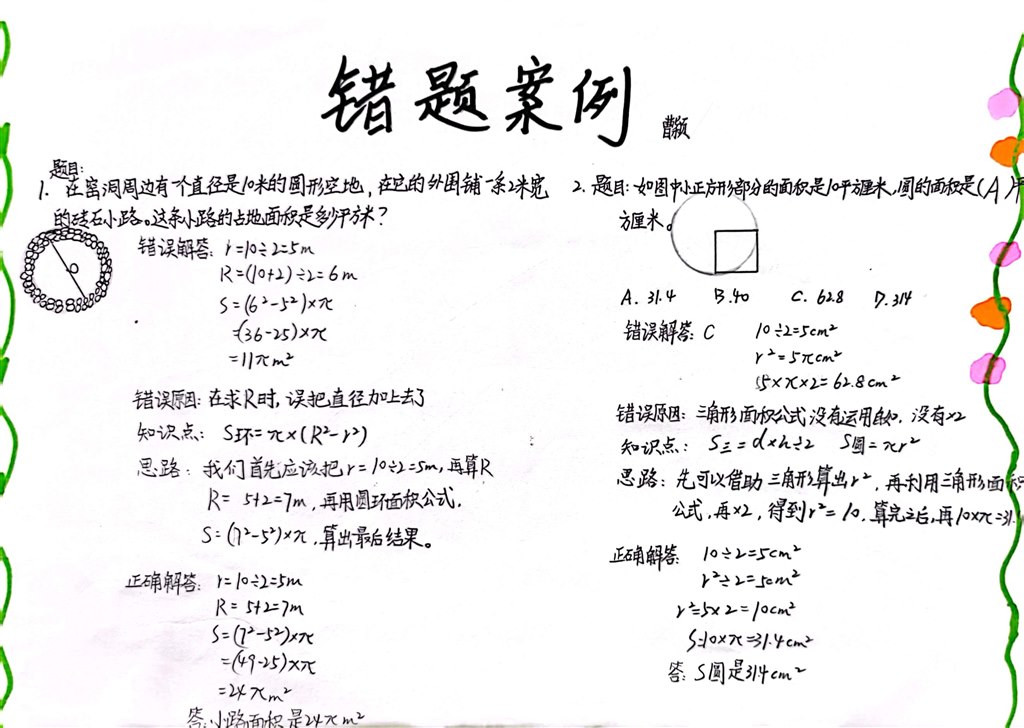 错题案例
曹颖
题目:
1. 在窑洞周边有一个直径是10米的圆形空地,在它的外围铺一条2米宽
的砖石小路。这条小路的占地面积是多少平方米?
错误解答: r=10÷2=5m
R=(10+2)÷2=6m
S=(6²-5²)×π
=(36-25)×π
=11πm²
错误原因: 在求R时,误把直径加上去了
知识点: S环=π×(R²-r²)
思路: 我们首先应该把r=10÷2=5m,再算R
R= 5+2=7m,再用圆环面积公式,
S=(7²-5²)×π,算出最后结果。
正确解答: r=10÷2=5m
R=5+2=7m
S=(7²-5²)×π
=(49-25)×π
=24πm²
答:小路面积是24πm²
2. 题目: 如图中小正方形部分的面积是10平方厘米,圆的面积是(A)平
方厘米。
A. 31.4 B.40 C. 62.8 D.314
错误解答: C 10÷2=5cm²
r²=5πcm²
5×π×2=62.8cm²
错误原因: 三角形面积公式没有运用自如,没有×2
知识点: S三=d×h÷2 S圆=πr²
思路: 先可以借助三角形算出r²,再利用三角形面积
公式,再×2,得到r²=10,算完之后,再10×π=31.
正确解答: 10÷2=5cm²
r²÷2=5cm²
r²=5×2=10cm²
S=10×π=31.4cm²
答: S圆是31.4cm²